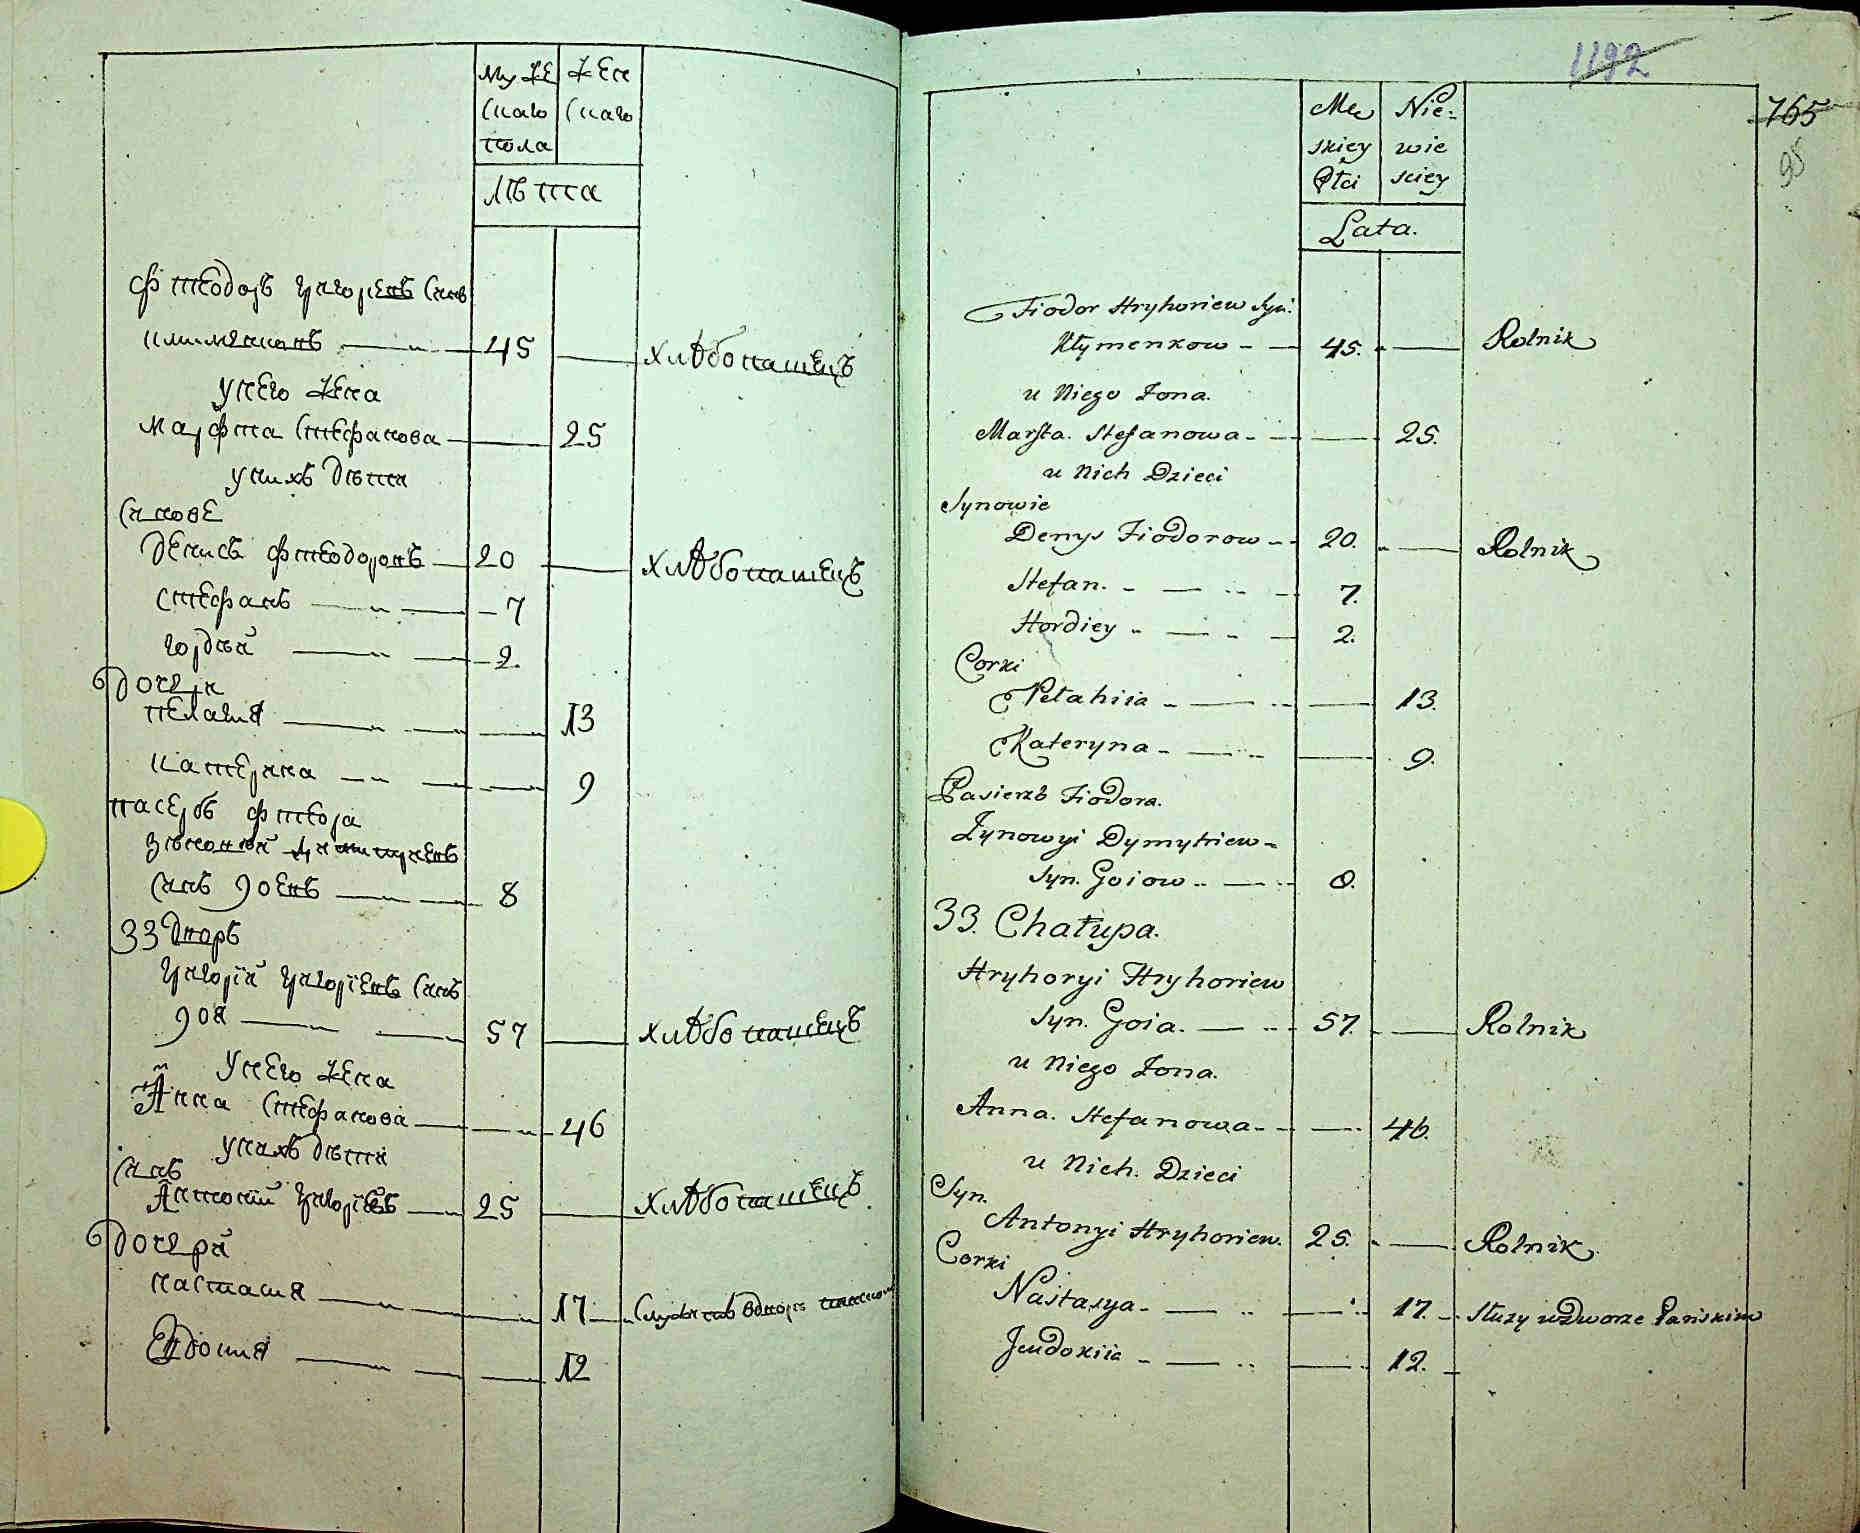 Муже
скаго
пола
Жен
скаго
Лѣта
Фтеодоръ Григориевъ синъ
климэнковъ 45 хлѣбопашецъ
у него жена
Марфта Стефанова 25
у нихъ дѣти
синове
Денисъ Фтеодоровъ 20 хлѣбопашецъ
Стефанъ 7
Гордѣй 2.
Дочери
Пелагия 13
Катерина 9
пасербъ Фтеора
Зѣновѣй Дмитриевъ
синъ Гоевъ 8
33 Дворъ
Григорій Григоріевъ синъ
Гоя 57 хлѣбопашецъ
у него жена
Анна Стефанова 46
у нихъ дѣти
синъ
Антоній Григоріевъ 25 хлѣбопашецъ
Дочери
Настасия 17 служитъ вдворѣ панском
Евдокия 12
1192
765
98
Mę
skiey
Płci
Nie=
wie
sciey
Lata.
Fiodor Hryhoriew Syn.
Kłymenkow 45. Rolnik
u Niego Żona.
Marfta. Stefanowa 25.
u Nich Dzieci
Synowie
Denys Fiodorow 20. Rolnik
Stefan. 7.
Hordiey 2.
Corki
Pełahiia 13.
Kateryna 9.
Pasierzb Fiodora.
Zynowyi Dymytriew
Syn. Goiow 8.
33. Chałupa.
Hryhoryi Hryhoriew
Syn. Goia. 57. Rolnik
u Niego Żona.
Anna. Stefanowa 46.
u Nich. Dzieci
Syn.
Antonyi Hryhoriew. 25. Rolnik.
Corki
Nastasya 17. Służy w Dworze Pańskim
Jewdokiia 12.